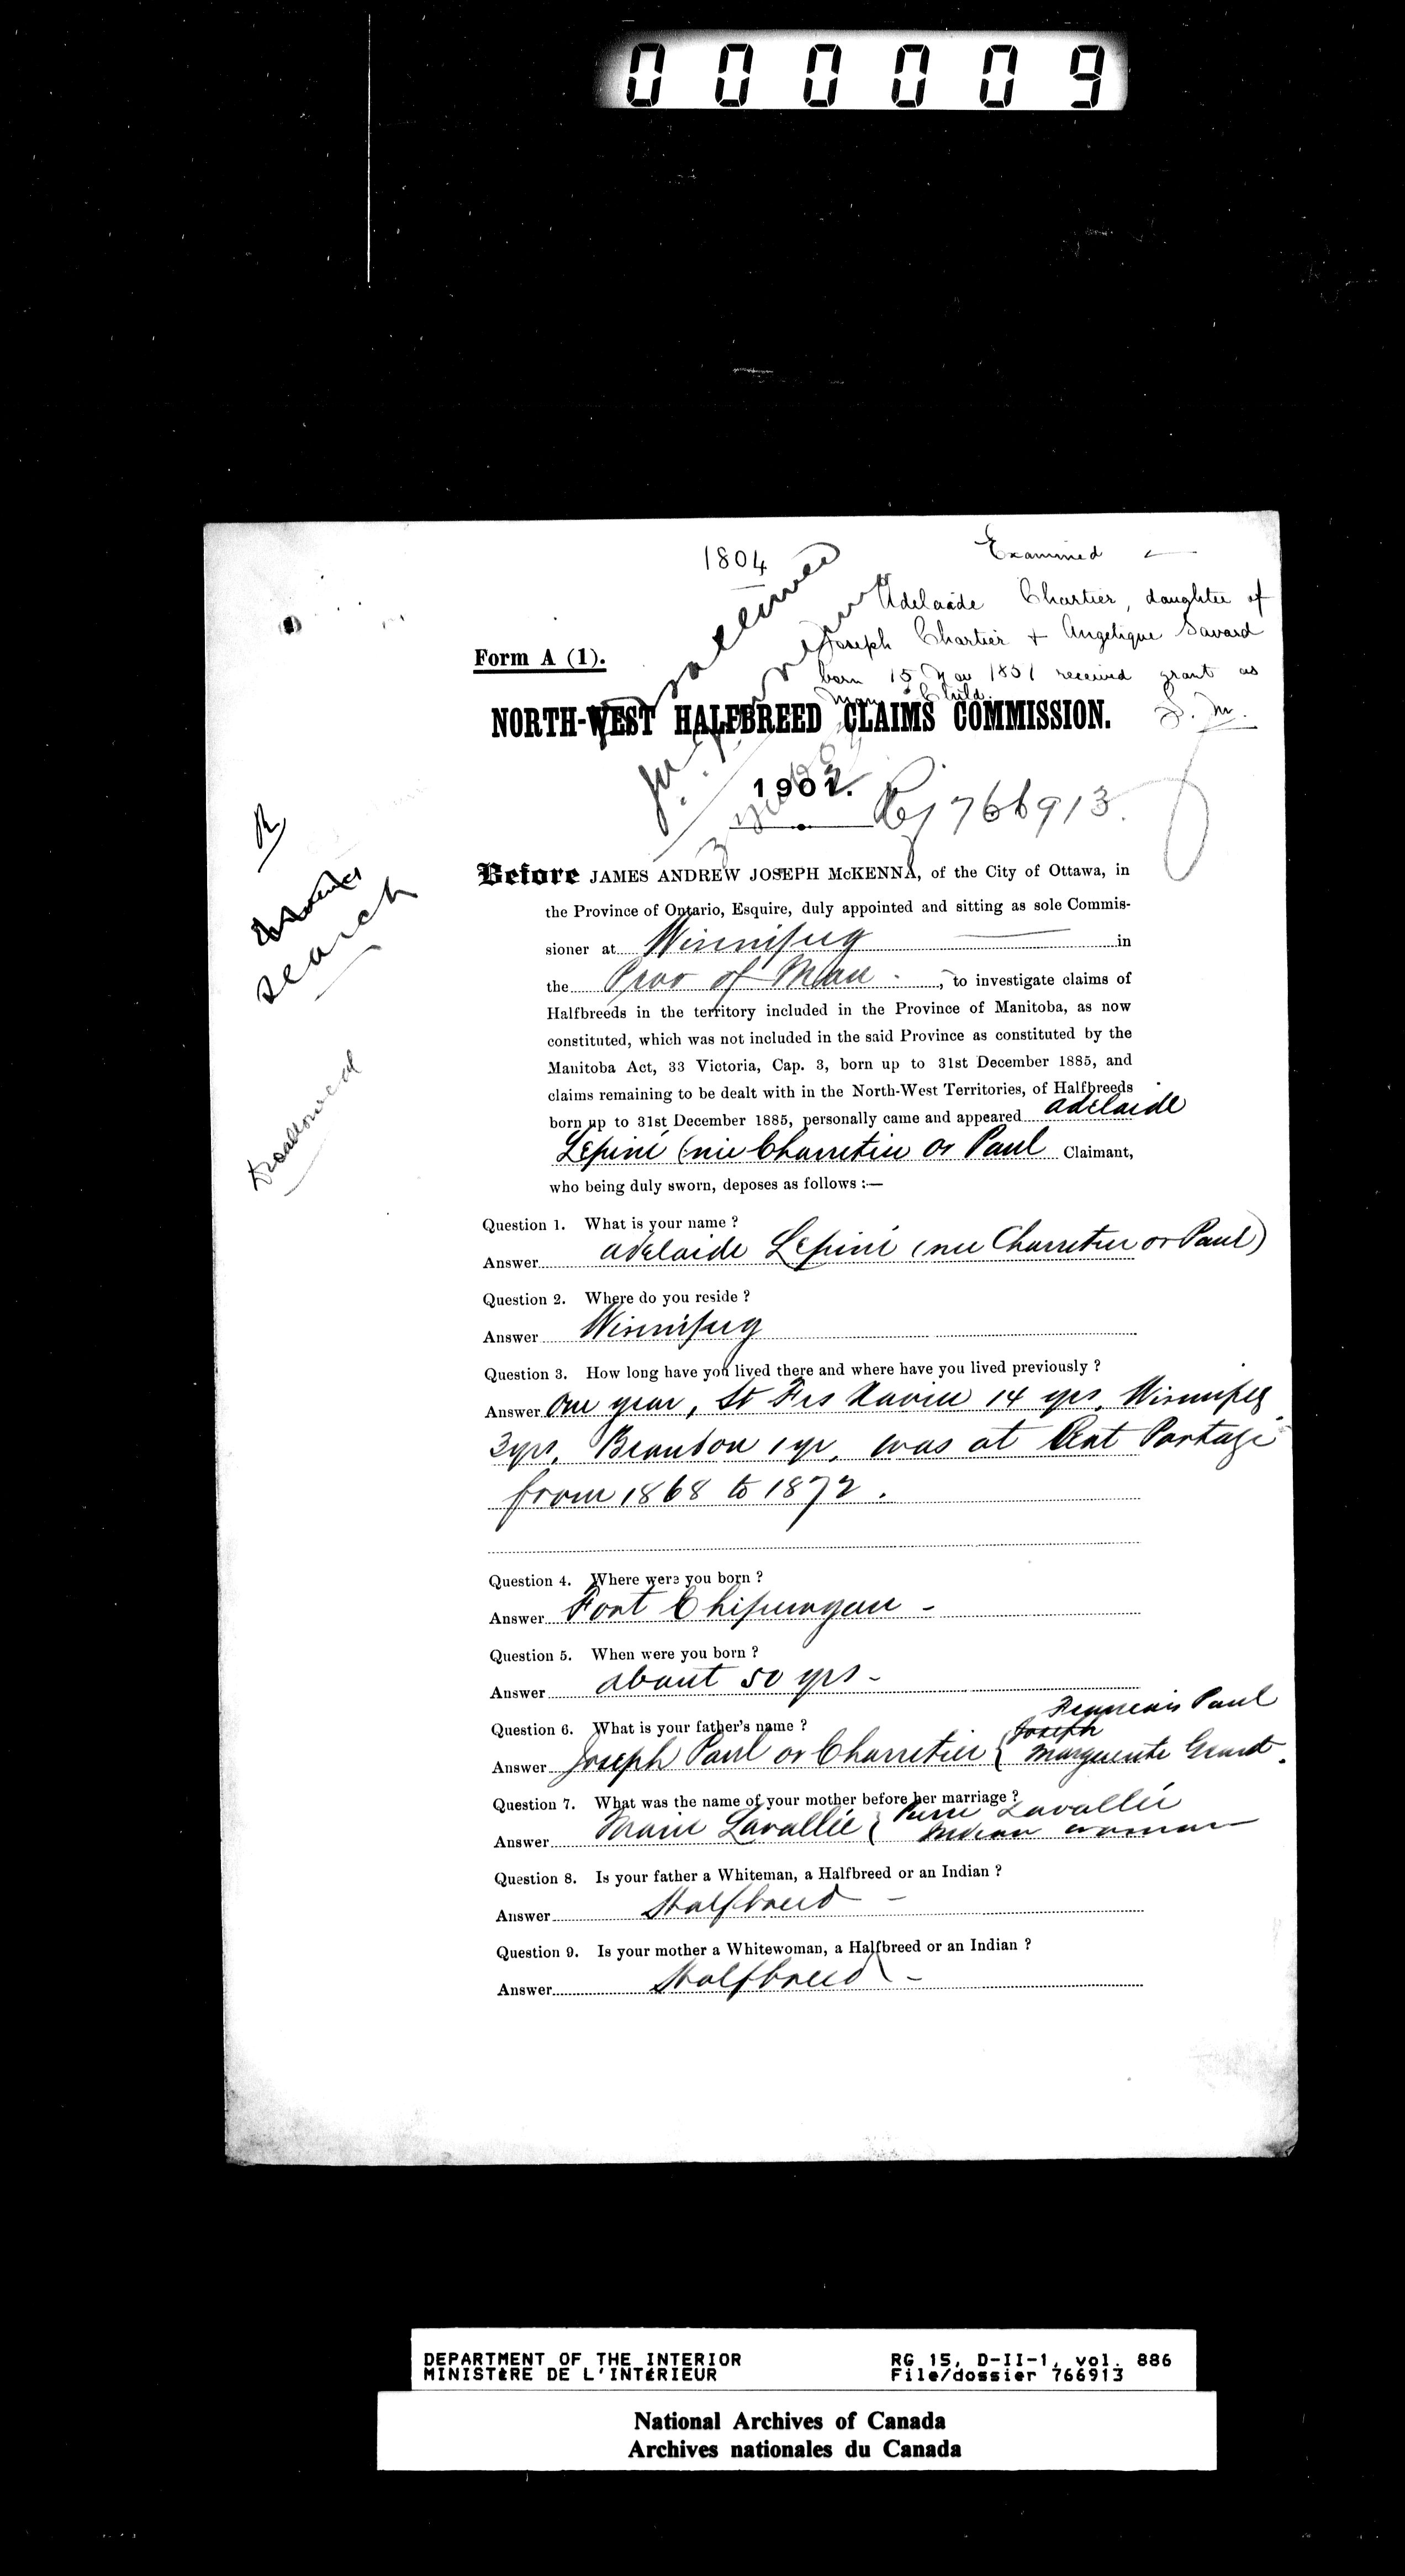 000009
1804
Examined
Adelaide Chartier, daughter of
Joseph Chartier + Angelique Savard
born 15 Nov 1851 received grant as
Man Child.
S. M.
Form A (1).
NORTH-WEST HALFBREED CLAIMS COMMISSION.
1901.
766913.
search
Disallowed
Before JAMES ANDREW JOSEPH McKENNA, of the City of Ottawa, in
the Province of Ontario, Esquire, duly appointed and sitting as sole Commis-
sioner at Winnipeg in
the Prov of Man ., to investigate claims of
Halfbreeds in the territory included in the Province of Manitoba, as now
constituted, which was not included in the said Province as constituted by the
Manitoba Act, 33 Victoria, Cap. 3, born up to 31st December 1885, and
claims remaining to be dealt with in the North-West Territories, of Halfbreeds
born up to 31st December 1885, personally came and appeared Adelaide
Lepine (nee Charretier or Paul Claimant,
who being duly sworn, deposes as follows :—
Question 1. What is your name ?
Answer Adelaide Lepine (nee Charretier or Paul)
Question 2. Where do you reside ?
Answer Winnipeg
Question 3. How long have you lived there and where have you lived previously ?
Answer One year, St Frs Xavier 14 yrs, Winnipeg
3yrs, Brandon 1 yr, was at Rat Portage
from 1868 to 1872.
Question 4. Where were you born ?
Answer Fort Chipewyan -
Question 5. When were you born ?
Answer about 50 yrs -
Francois Paul
Question 6. What is your father's name ?
Joseph
Answer Joseph Paul or Charretier { Marguerite Grant.
Question 7. What was the name of your mother before her marriage ?
Pierre Lavallée
Answer Marie Lavallée { Indian woman
Question 8. Is your father a Whiteman, a Halfbreed or an Indian ?
Answer Halfbreed -
Question 9. Is your mother a Whitewoman, a Halfbreed or an Indian ?
Answer Halfbreed -
DEPARTMENT OF THE INTERIOR RG 15, D-II-1, vol. 886
MINISTÈRE DE L'INTÉRIEUR File/dossier 766913
National Archives of Canada
Archives nationales du Canada